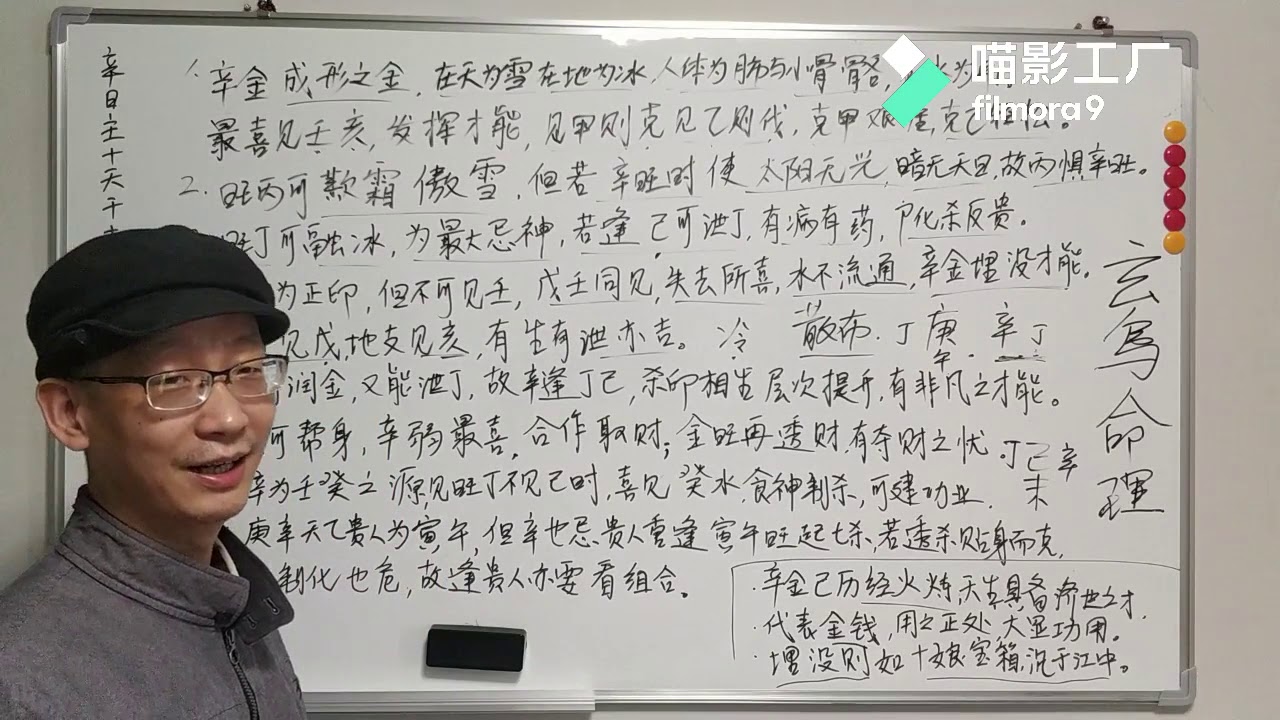 喵影工厂
filmora9
辛日主十天干
1. 辛金成形之金，在天为雪在地为冰，人体为肺与小骨骼，
最喜见壬亥，发挥才能，见甲则克见乙则伐，克甲艰难，克乙轻松。
2. 旺丙可欺霜傲雪，但若辛旺时使太阳无光，暗无天日，故丙惧辛旺。
旺丁可融冰，为最大忌神，若逢己可泄丁，有病有药，印化杀反贵。
为正印，但不可见壬，戊壬同见，失去所喜，水不流通，辛金埋没才能。
见戊，地支见亥，有生有泄亦吉。 冷 散布. 丁庚 午. 辛丁
润金，又能泄丁，故辛逢丁己，杀印相生层次提升，有非凡之才能。
可帮身，辛弱最喜，合作取财；金旺再透财，有夺财之忧. 丁己辛
辛为壬癸之源，见旺丁不见己时，喜见癸水，食神制杀，可建功业. 未
庚辛天乙贵人为寅午，但辛也忌贵人重逢寅午旺起七杀，若透杀贴身而克，
制化也危，故逢贵人亦要看组合。
·辛金已历经火炼，天生具备济世之才.
·代表金钱，用之正处大显功用。
·埋没则如十娘宝箱，沉于江中。
玄鸟命理